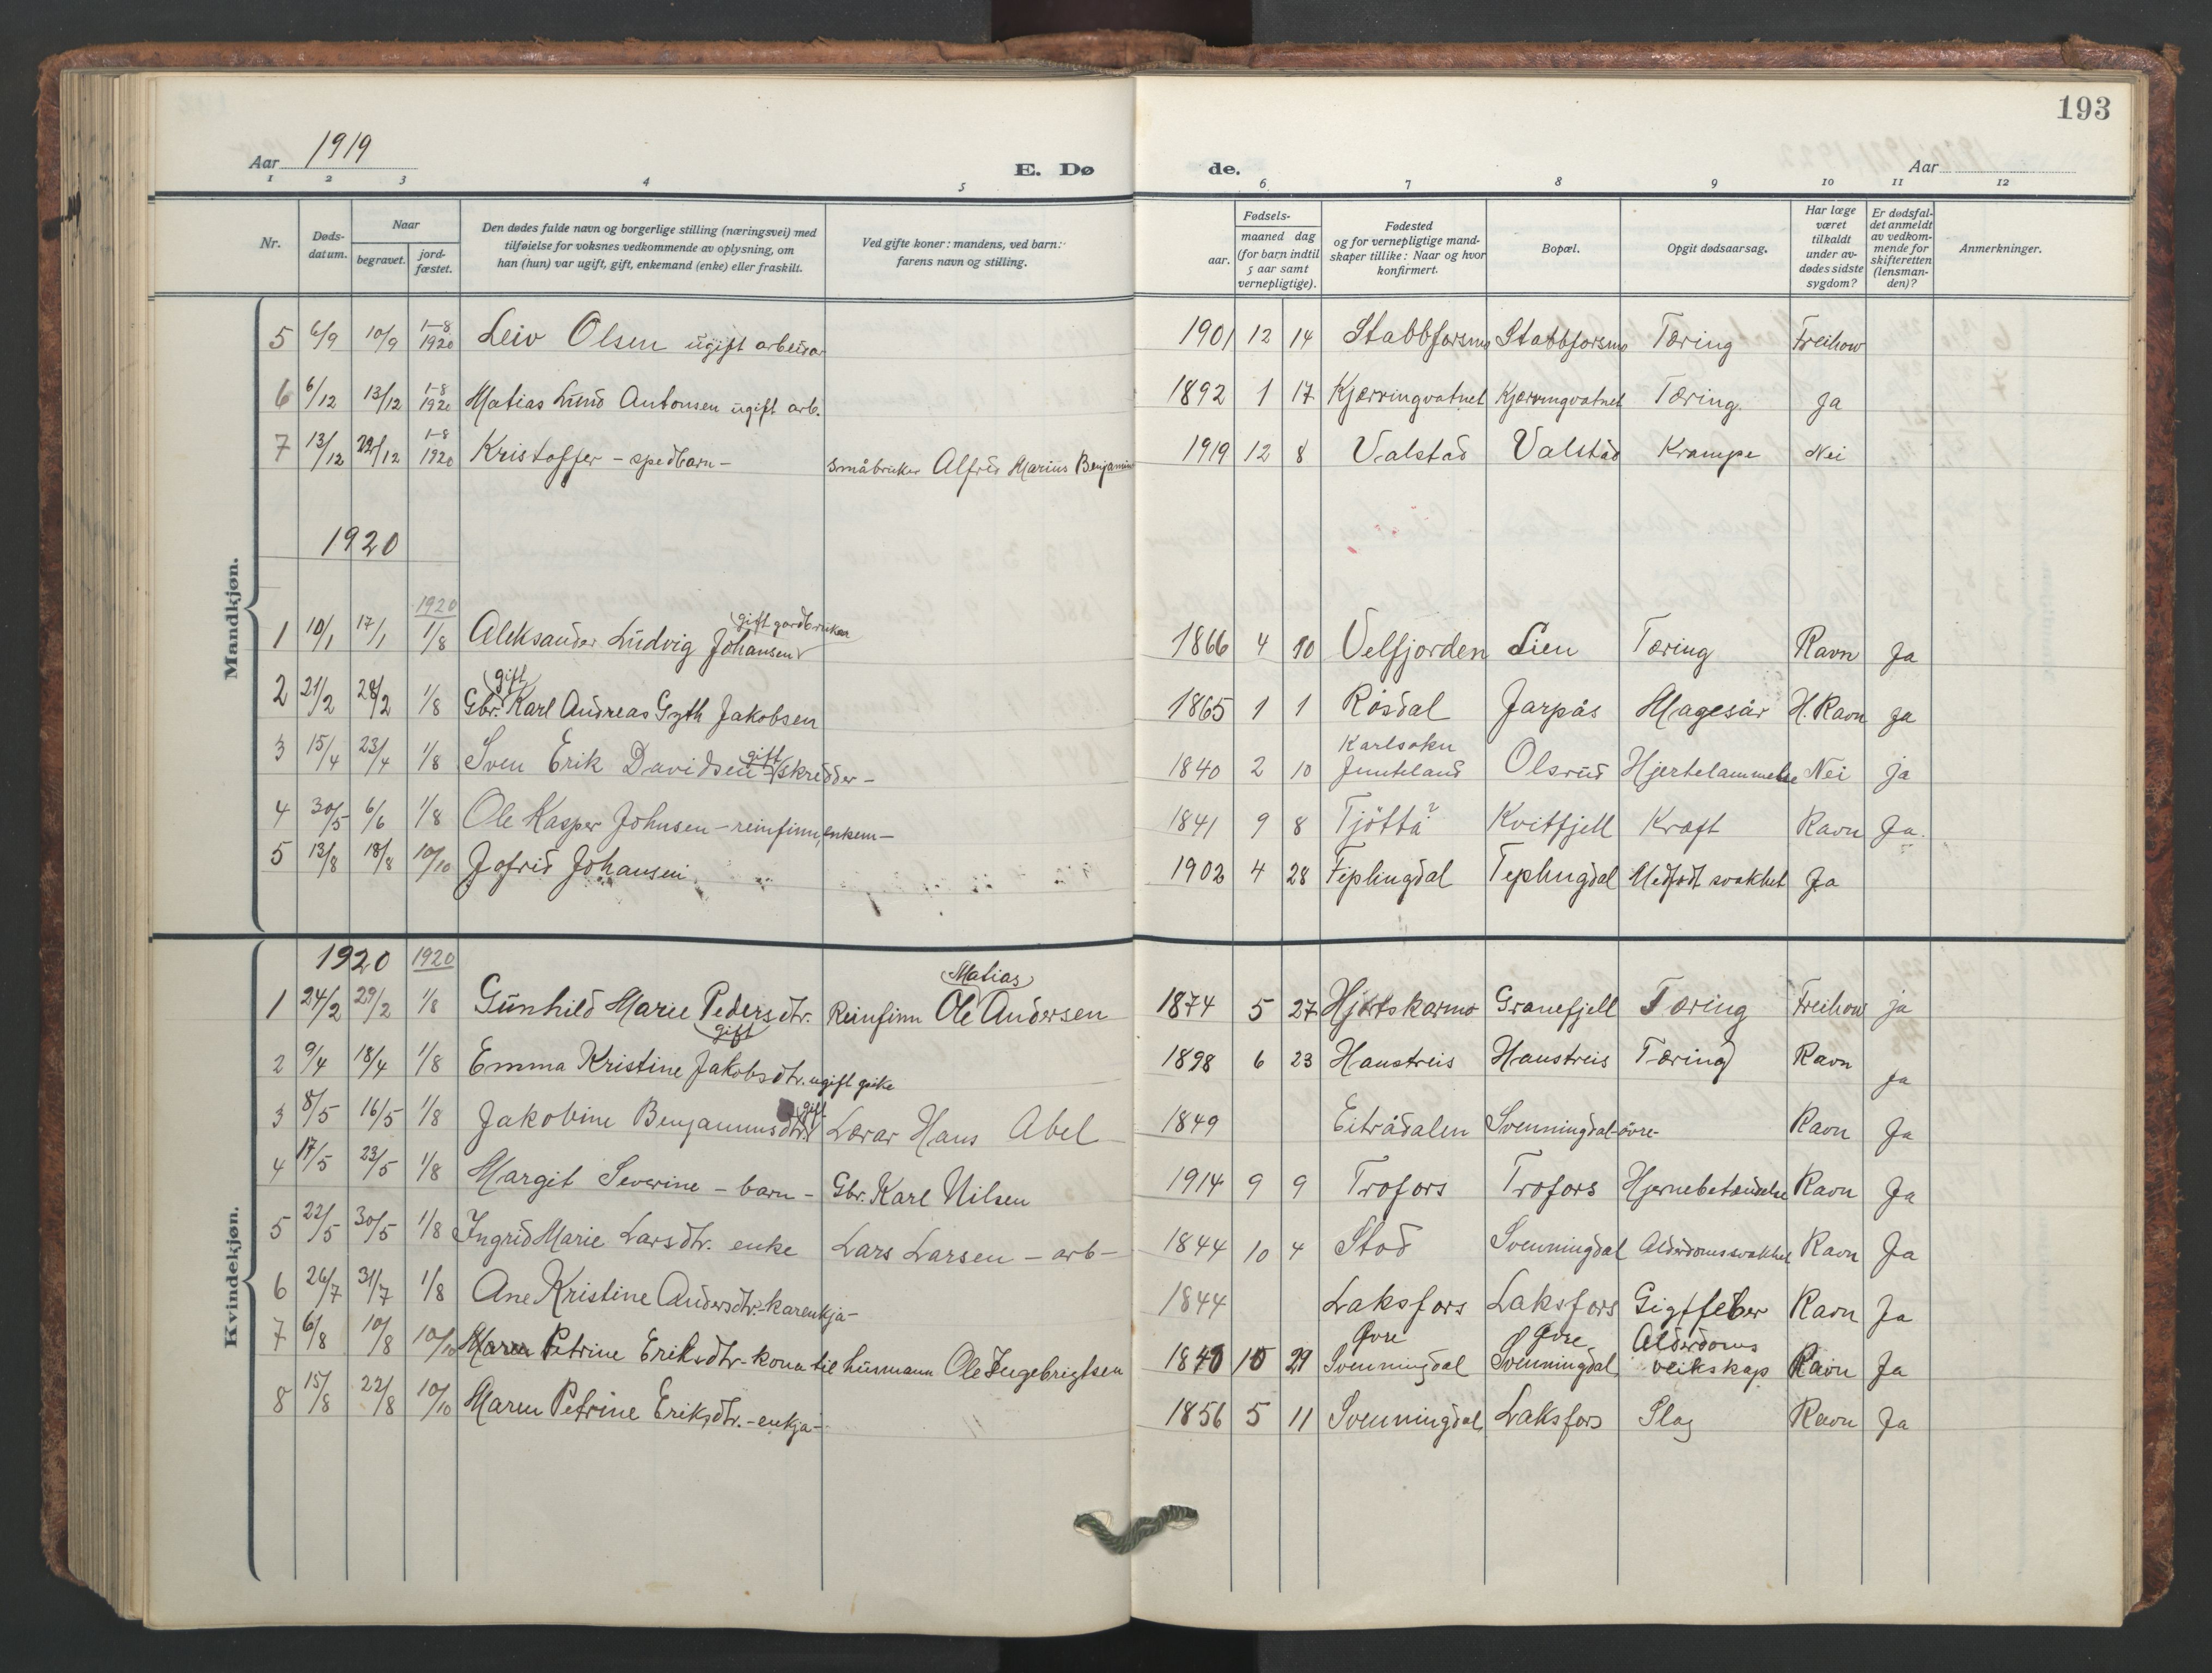 193
Aar 1919
E. Dø
de.
Aar
1 2 3 4 5 6 7 8 9 10 11 12
Nr.
Døds-
datum.
Naar
begravet.
jord-
fæstet.
Den dødes fulde navn og borgerlige stilling (næringsvei) med
tilføielse for voksnes vedkommende av oplysning, om
han (hun) var ugift, gift, enkemand (enke) eller fraskilt.
Ved gifte koner: mandens, ved barn:
farens navn og stilling.
Fødsels-
aar.
maaned dag
(for barn indtil
5 aar samt
vernepligtige).
Fødested
og for vernepligtige mand-
skaper tillike: Naar og hvor
konfirmert.
Bopæl.
Opgit dødsaarsag.
Har læge
været
tilkaldt
under av-
dødes sidste
sygdom?
Er dødsfal-
det anmeldt
av vedkom-
mende for
skifteretten
(lensman-
den)?
Anmerkninger.
Mandkjøn.
5 6/9 10/9 1-8 1920 Leiv Olsen ugift arbeidar 1901 12 14 Stabbforsmo Stabbforsmo Tæring Freihow
6 6/12 13/12 1-8 1920 Matias Lund Antonsen ugift arb. 1892 1 17 Kjærringvatnet Kjærringvatnet Tæring. Ja
7 13/12 22/12 1-8 1920 Kristoffer - spedbarn - småbruker Alfred Marius Benjamins 1919 12 8 Valstad Valstad Krampe Nei
1920
1920
1 10/1 17/1 1/8 Aleksander Ludvig Johansen gift gardbruker 1866 4 10 Velfjorden Lien Tæring Ravn Ja
2 21/2 28/2 1/8 Gbr. gift Karl Andreas Gyth Jakobsen 1865 1 1 Røsdal Jarpås Magesår H. Ravn Ja
3 15/4 23/4 1/8 Sven Erik Davidsen gift skredder - 1840 2 10 Karlsoku Olsrud Hjertelammelse Nei ja
4 30/5 6/6 1/8 Ole Kasper Johnsen - reinfinn, enkem - 1841 9 8 Tjötta? Kvitfjell Kræft Ravn Ja.
5 13/8 18/8 10/10 Jofrid Johansen 1902 4 28 Fiplingdal Fiplingdal Medfødt svakhet Ja
Kvindekjøn.
1920 1920
1 24/2 29/2 1/8 Gunhild Marie Pedersdtr. gift Reinfinn Ole Matias Andersen 1874 5 27 Hjortskarmo Granefjell Tæring Freihow ja
2 9/4 18/4 1/8 Emma Kristine Jakobsdtr. ugift gjeike 1898 6 23 Haustreis Haustreis Tæring Ravn ja
3 8/5 16/5 1/8 Jakobine Benjaminsdtr. gift Lærar Hans Abel 1849 Eiterådalen Svenningdal-övre- Ravn Ja
4 17/5 23/5 1/8 Margit Severine - barn - Gbr. Karl Nilsen 1914 9 9 Trofors Trofors Hjernebetændelse Ravn Ja
5 22/5 30/5 1/8 Ingrid Marie Larsdtr. enke Lars Larsen - arb - 1844 10 4 Stod Svenningdal Alderdomssvakhet Ravn Ja
6 26/7 31/7 1/8 Ane Kristine Andersdtr. - karenkja - 1844 Laksfors Laksfors Gigtfeber Ravn Ja
7 6/8 10/8 10/10 Maren Petrine Eriksdtr - kona til husmann Ole Ingebrigtsen 1840 10 29 Øvre Svenningdal Øvre Svenningdal Alderdoms veikskap Ravn Ja
8 15/8 22/8 10/10 Maren Petrine Eriksdtr. - enkja - 1856 5 11 Svenningdal Laksfors Slag Ravn Ja